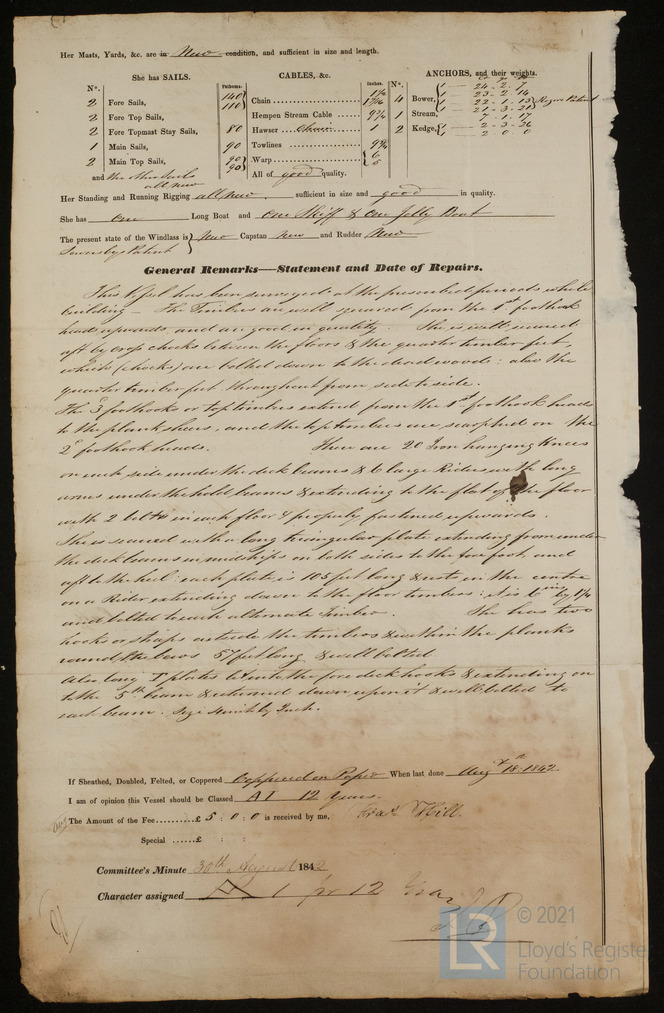 Her Masts, Yards, &c. are in New condition, and sufficient in size and length.
She has SAILS.
CABLES, &c.
ANCHORS, and their weights.
N°.
Fathoms.
Inches.
N°.
2 Fore Sails,
2 Fore Top Sails,
2 Fore Topmast Stay Sails,
1 Main Sails,
2 Main Top Sails,
and the other Sails all new
140
110
80
90
90
90
Chain
Hempen Stream Cable
Hawser Chain
Towlines
Warp
All of good quality.
1
6
4 Bower,
1 Stream,
2 Kedge,
1 - 24 - 2 - 1
1 - 23 - 2 - 14
1 - 22 - 1 - 13
1 - 21 - 3 - 21
7 - 1 - 17
1 - 2 - 3 - 26
2 - 0 - 0
Her Standing and Running Rigging all new sufficient in size and good in quality.
She has one Long Boat and One Skiff & One Jolly Boat
The present state of the Windlass is New Capstan New and Rudder New
Patent
General Remarks—Statement and Date of Repairs.
This Vessel has been surveyed at the prescribed periods while
building - The Timbers are well squared from the 1st foothook
heads upwards and are good in quality. She is well secured
aft by crop chocks between the floors & the quarter timber feet,
which (chocks) are bolted down to the deadwoods: also the
quarter timber feet throughout from side to side.
The 3d foothooks or toptimbers extend from the 1st foothook heads
to the plank sheers, and the toptimbers are scarphed on the
2d foothook heads. There are 20 Iron hanging Knees
on each side under the deck beams & 6 large Riders with long
arms under the hold beams & extending to the flat of the floor
with 2 bolts in each floor & properly fastened upwards.
She is secured with a long triangular plate extending from under
the deck beams in midships on both sides to the forefoot and
aft to the heel: each plate is 105 feet long & rests in the centre
on a Rider extending down to the floor timbers: it is 6 ins by 1 1/4
and bolted to each alternate Timber. She has two
hooks or straps outside the timbers & within the planks
round the bows 57 feet long & well bolted
Also long plates the fore deck hooks & extending on
to the 5th beam & returned down upon it & well bolted to
each beam.
If Sheathed, Doubled, Felted, or Coppered Coppered on Paper When last done Augt 18th 1842.
I am of opinion this Vessel should be Classed A1 12 Years
The Amount of the Fee £ 5 : 0 : 0 is received by me, Hill.
Special £ : :
Committee's Minute 30th August 1842
Character assigned A 1 for 12 Years
© 2021
LR
Lloyd's Register
Foundation